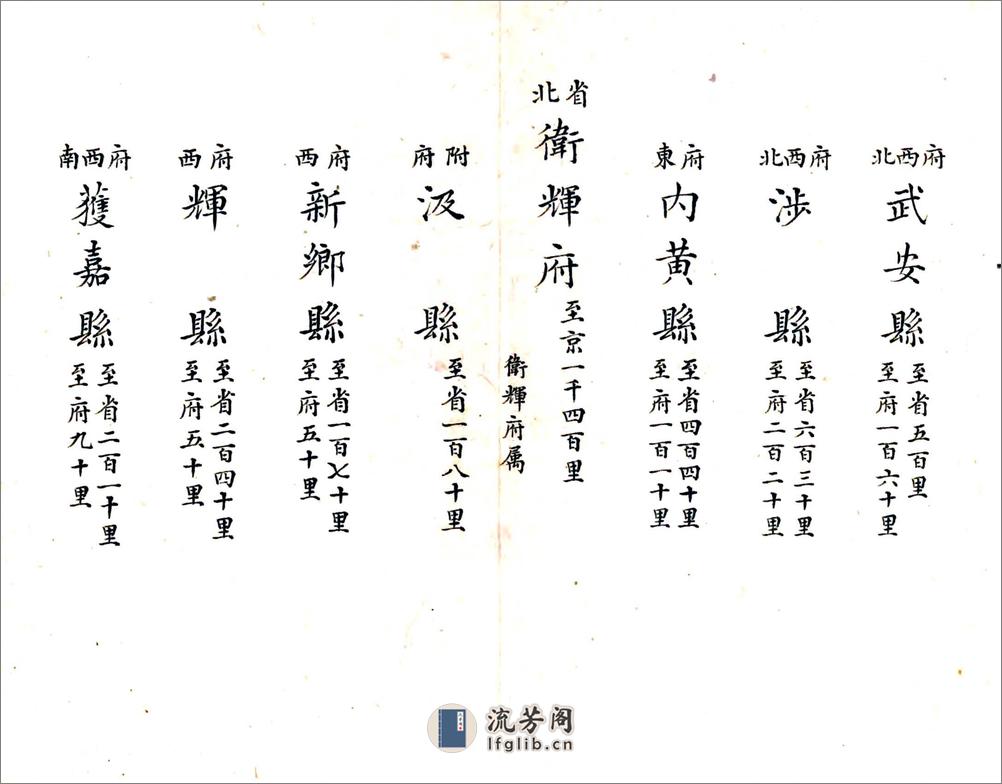 府西北
武安縣
至省五百里
至府一百六十里
府西北
涉縣
至省六百三十里
至府二百二十里
府東
內黃縣
至省四百四十里
至府一百一十里
省北
衛輝府
至京一千四百里
衛輝府属
附府
汲縣
至省一百八十里
府西
新鄉縣
至省一百七十里
至府五十里
府西
輝縣
至省二百四十里
至府五十里
府西南
獲嘉縣
至省二百一十里
至府九十里
流芳阁
lfglib.cn